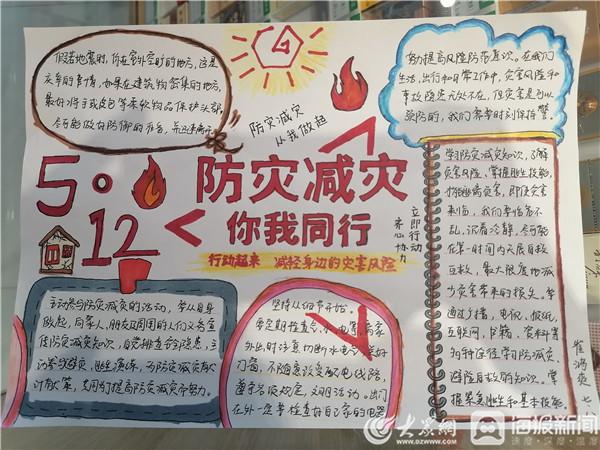 假若地震时,你在室外空旷的地方,这是
庆幸的事情,如果在建筑物密集的地方,
最好将手或皮包等柔软物品保护头部,
尽可能做好防御的准备,并迅速离开
防灾减灾
从我做起
努力提高风险防范意识。在我们
生活、出行和日常工作中,灾害风险和
事故隐患无处不在,但灾害是可以
预防的,我们需要时刻保持警
5·12
防灾减灾
你我同行
行动起来 减轻身边的灾害风险
立即行动
齐心协力
学习防灾减灾知识,了解
灾害风险、掌握逃生技能,
灾害,即使灾害
来临,我们要临危不
乱,沉着冷静,尽可能
在第一时间内开展自救
互救,最大限度地减
少灾害带来的损失。要
通过广播、电视、报纸、
互联网、书籍、资料等
多种途径,学习防灾减灾、
避险自救的知识。掌
握紧急逃生和基本技能
主动参与防灾减灾的活动,要从自身
做起,向家人、朋友及周围的人们义务宣
传防灾减灾知识,自觉排查当前隐患,主
动参与避灾、逃生演练,为防灾减灾献
计献策,共同为提高防灾减灾而努力。
坚持从细节开始。
要定期检查
外出时注意切断水电
门窗,不随意改变家电线路,
遵守各项规定,文明活动。出门
在外一定要检查好自己家的电器
大众网
www.dzwww.com
海报新闻
速度·深度·温度